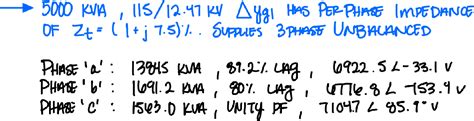 → 5000 KVA, 115/12.47 KV Δyg1 HAS PER PHASE IMPEDANCE
OF Zt = (1+j 7.5)%. SUPPLIES 3PHASE UNBALANCED
PHASE 'a': 1384.5 KVA, 89.2% LAG, 6922.5 ∠-33.1 V
PHASE 'b': 1691.2 KVA, 80% LAG, 6776.8 ∠-153.9 V
PHASE 'C': 1563.0 KVA, UNITY PF, 7104.7 ∠ 85.9° V